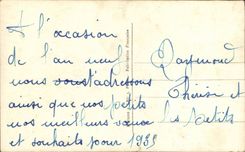 A l'occasion
de l'an neuf
nous vous t'adressons
ainsi que nos petits
nos meilleurs vœux
et souhaits pour 1935
Raymond
Thérèse et
les petits